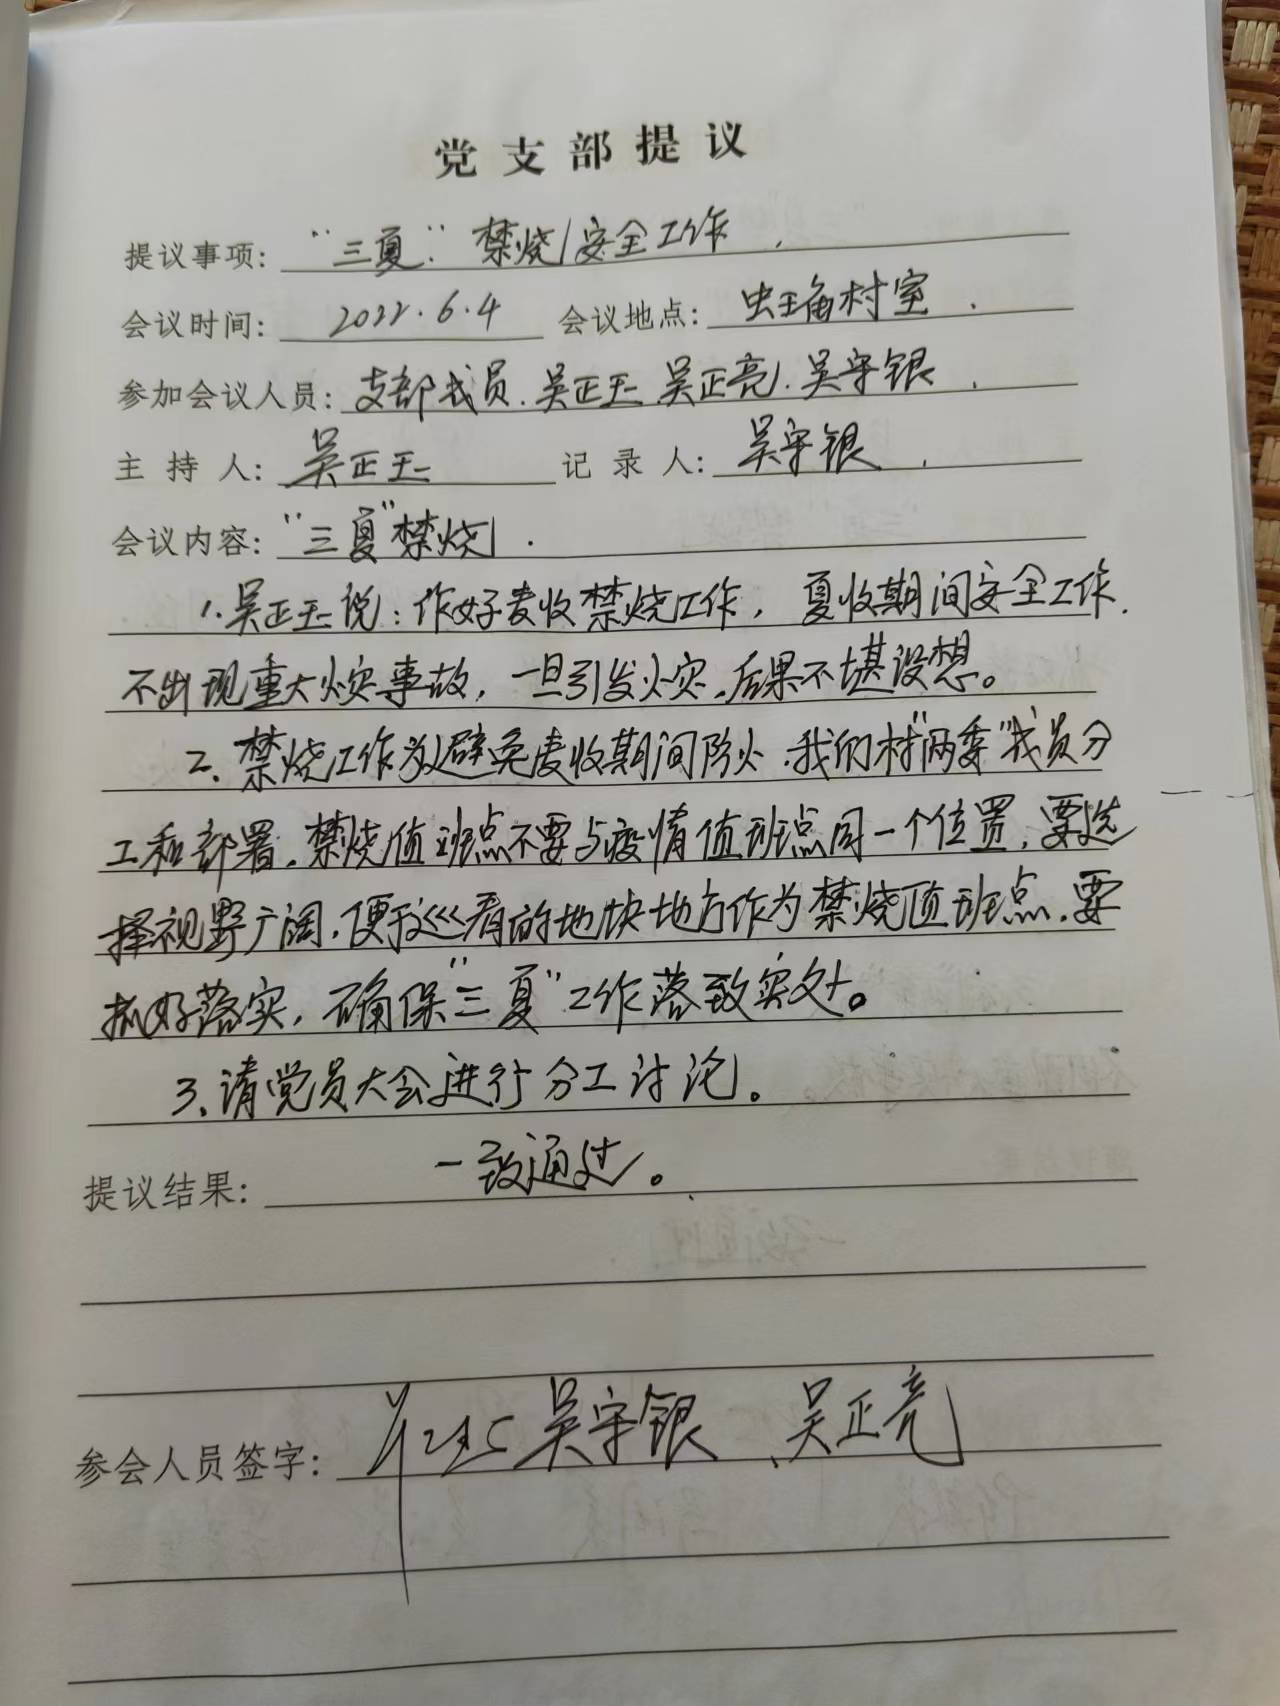 党支部提议
提议事项: “三夏” 禁烧/安全工作.
会议时间: 2022.6.4 会议地点: 虫王庙村室.
参加会议人员: 支部成员.吴正玉 吴正亮.吴守银.
主持人: 吴正玉 记录人: 吴守银.
会议内容: “三夏”禁烧.
1.吴正玉说:作好麦收禁烧工作, 夏收期间安全工作.
不出现重大火灾事故,一旦引发火灾,后果不堪设想。
2.禁烧工作为避免麦收期间防火.我们村“两委”成员分
工和部署.禁烧值班点不要与疫情值班点同一个位置,要选
择视野广阔.便于巡看的地块地方作为禁烧值班点.要
抓好落实,确保“三夏”工作落致实处。
3.请党员大会进行分工讨论。
提议结果: 一致通过。
参会人员签字: 吴守银、吴正亮